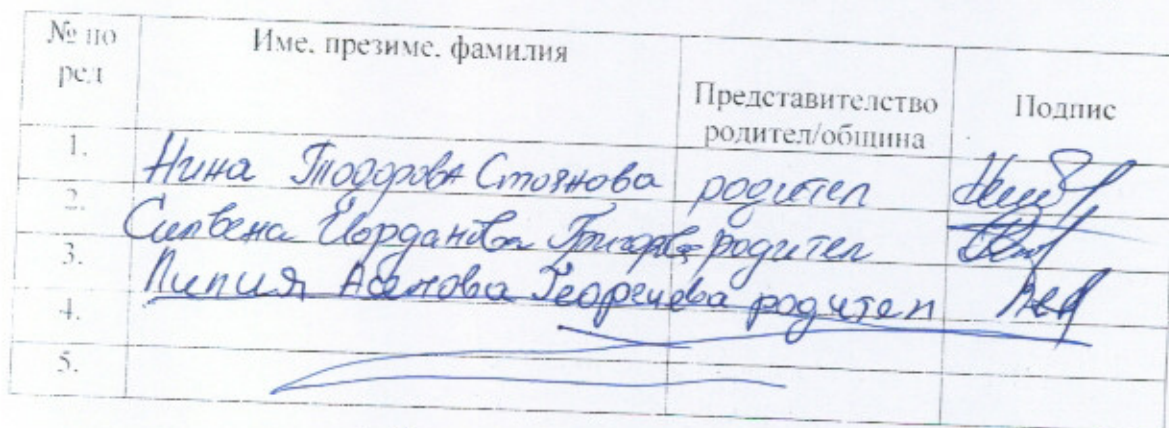 № по ред Име, презиме, фамилия Представителство родител/община Подпис
1. Нина Тодорова Стоянова родител
2. Силвена Йорданова Григорова родител
3. Лилия Асенова Георгиева родител
4.
5.